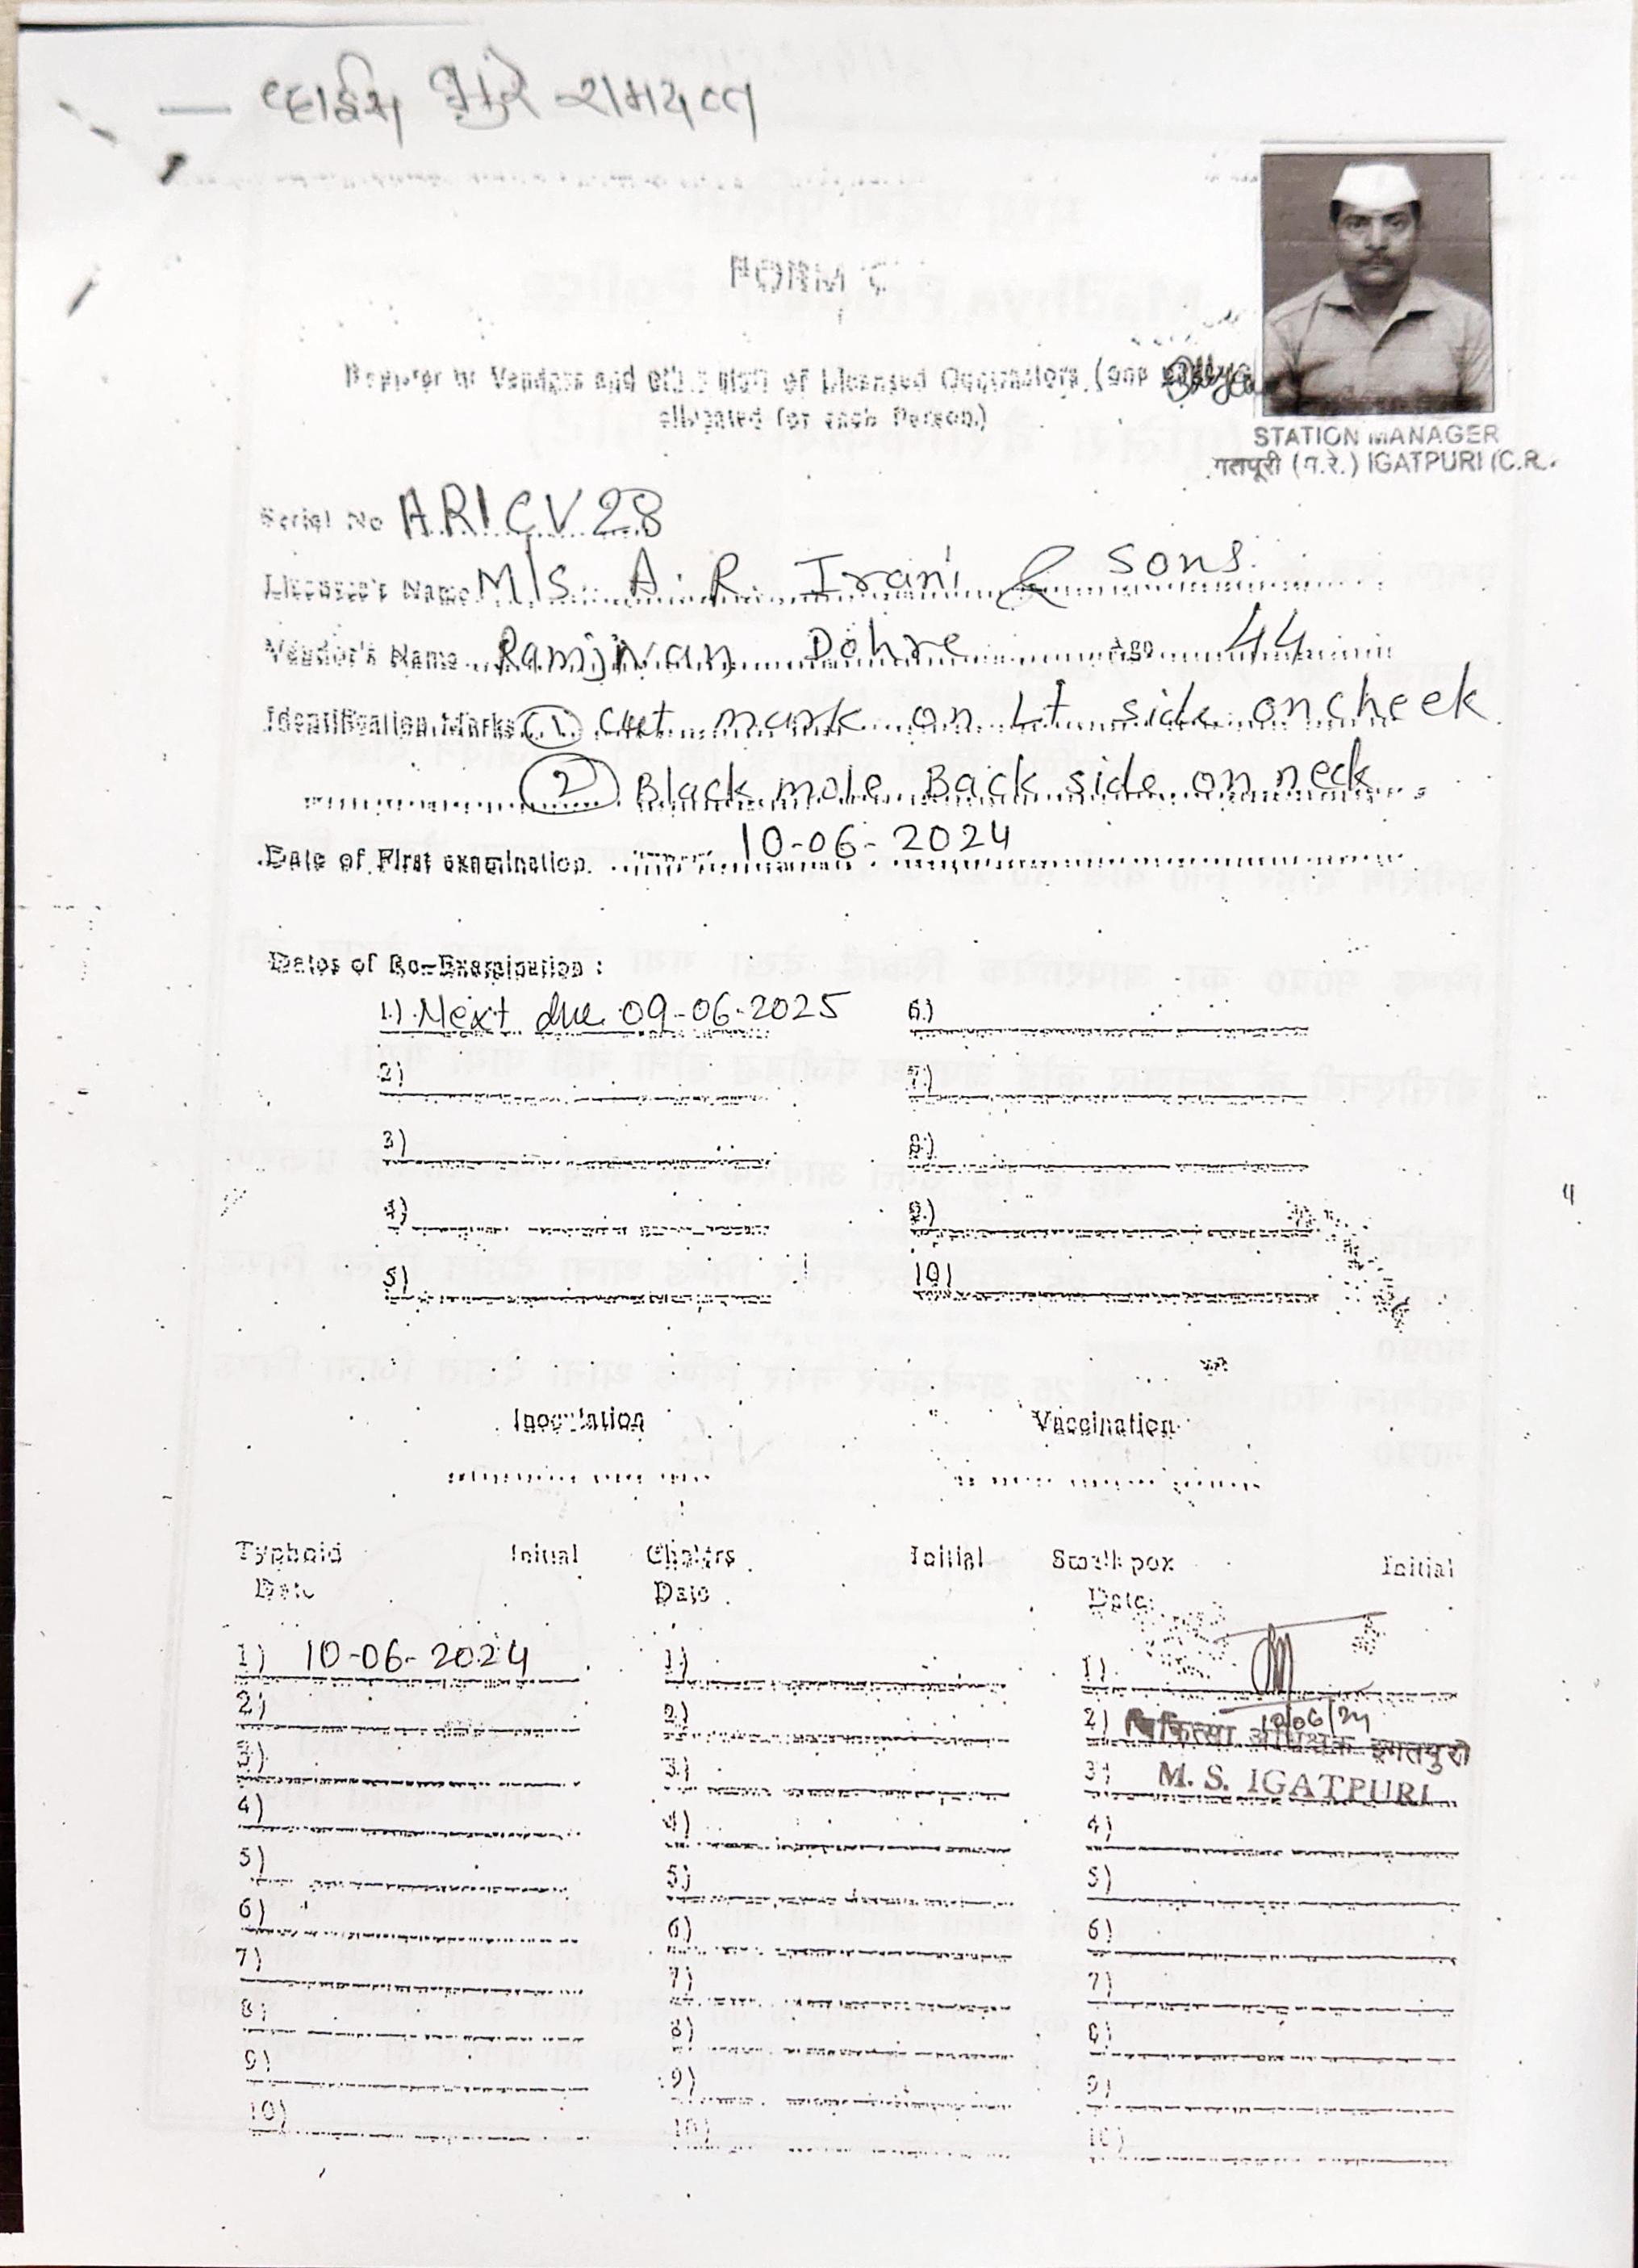 FORM C
Register of Vendors and other staff of Licensed Contractors, (one
allocated for each Person.)
STATION MANAGER
गतपूरी (म.रे.) IGATPURI (C.R.
Serial No A.R.I.C.V.28
Licensee's Name M/S. A. R. Irani & Sons.
Vendor's Name Ramjivan Dohre Age 44
Identification Marks (1) Cut mark on Lt side on cheek
(2) Black mole Back side on neck
Date of First examination. 10-06-2024
Dates of Re-Examination :
1.) Next due 09-06-2025 6.)
2) 7.)
3) 8.)
4) 9.)
5) 10)
Inoculation Vaccination
Typhoid Initial Cholera Initial Small pox Initial
Date Date Date:
1) 10-06-2024 1) 1)
2) 2) 2) 10/06/24
चिकित्सा अधीक्षक इगतपुरी
3) 3) 3) M. S. IGATPURI
4) 4) 4)
5) 5) 5)
6) 6) 6)
7) 7) 7)
8) 8) 8)
9) 9) 9)
10) 10) 10)